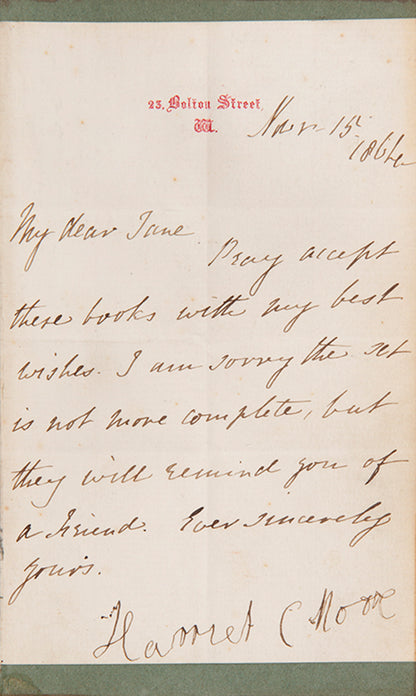 23, Bolton Street,
W.
Novr 15
1864
My dear Jane
Pray accept
these books with my best
wishes. I am sorry the set
is not more complete, but
they will remind you of
a friend. Ever sincerely
yours.
Harriet C Moore